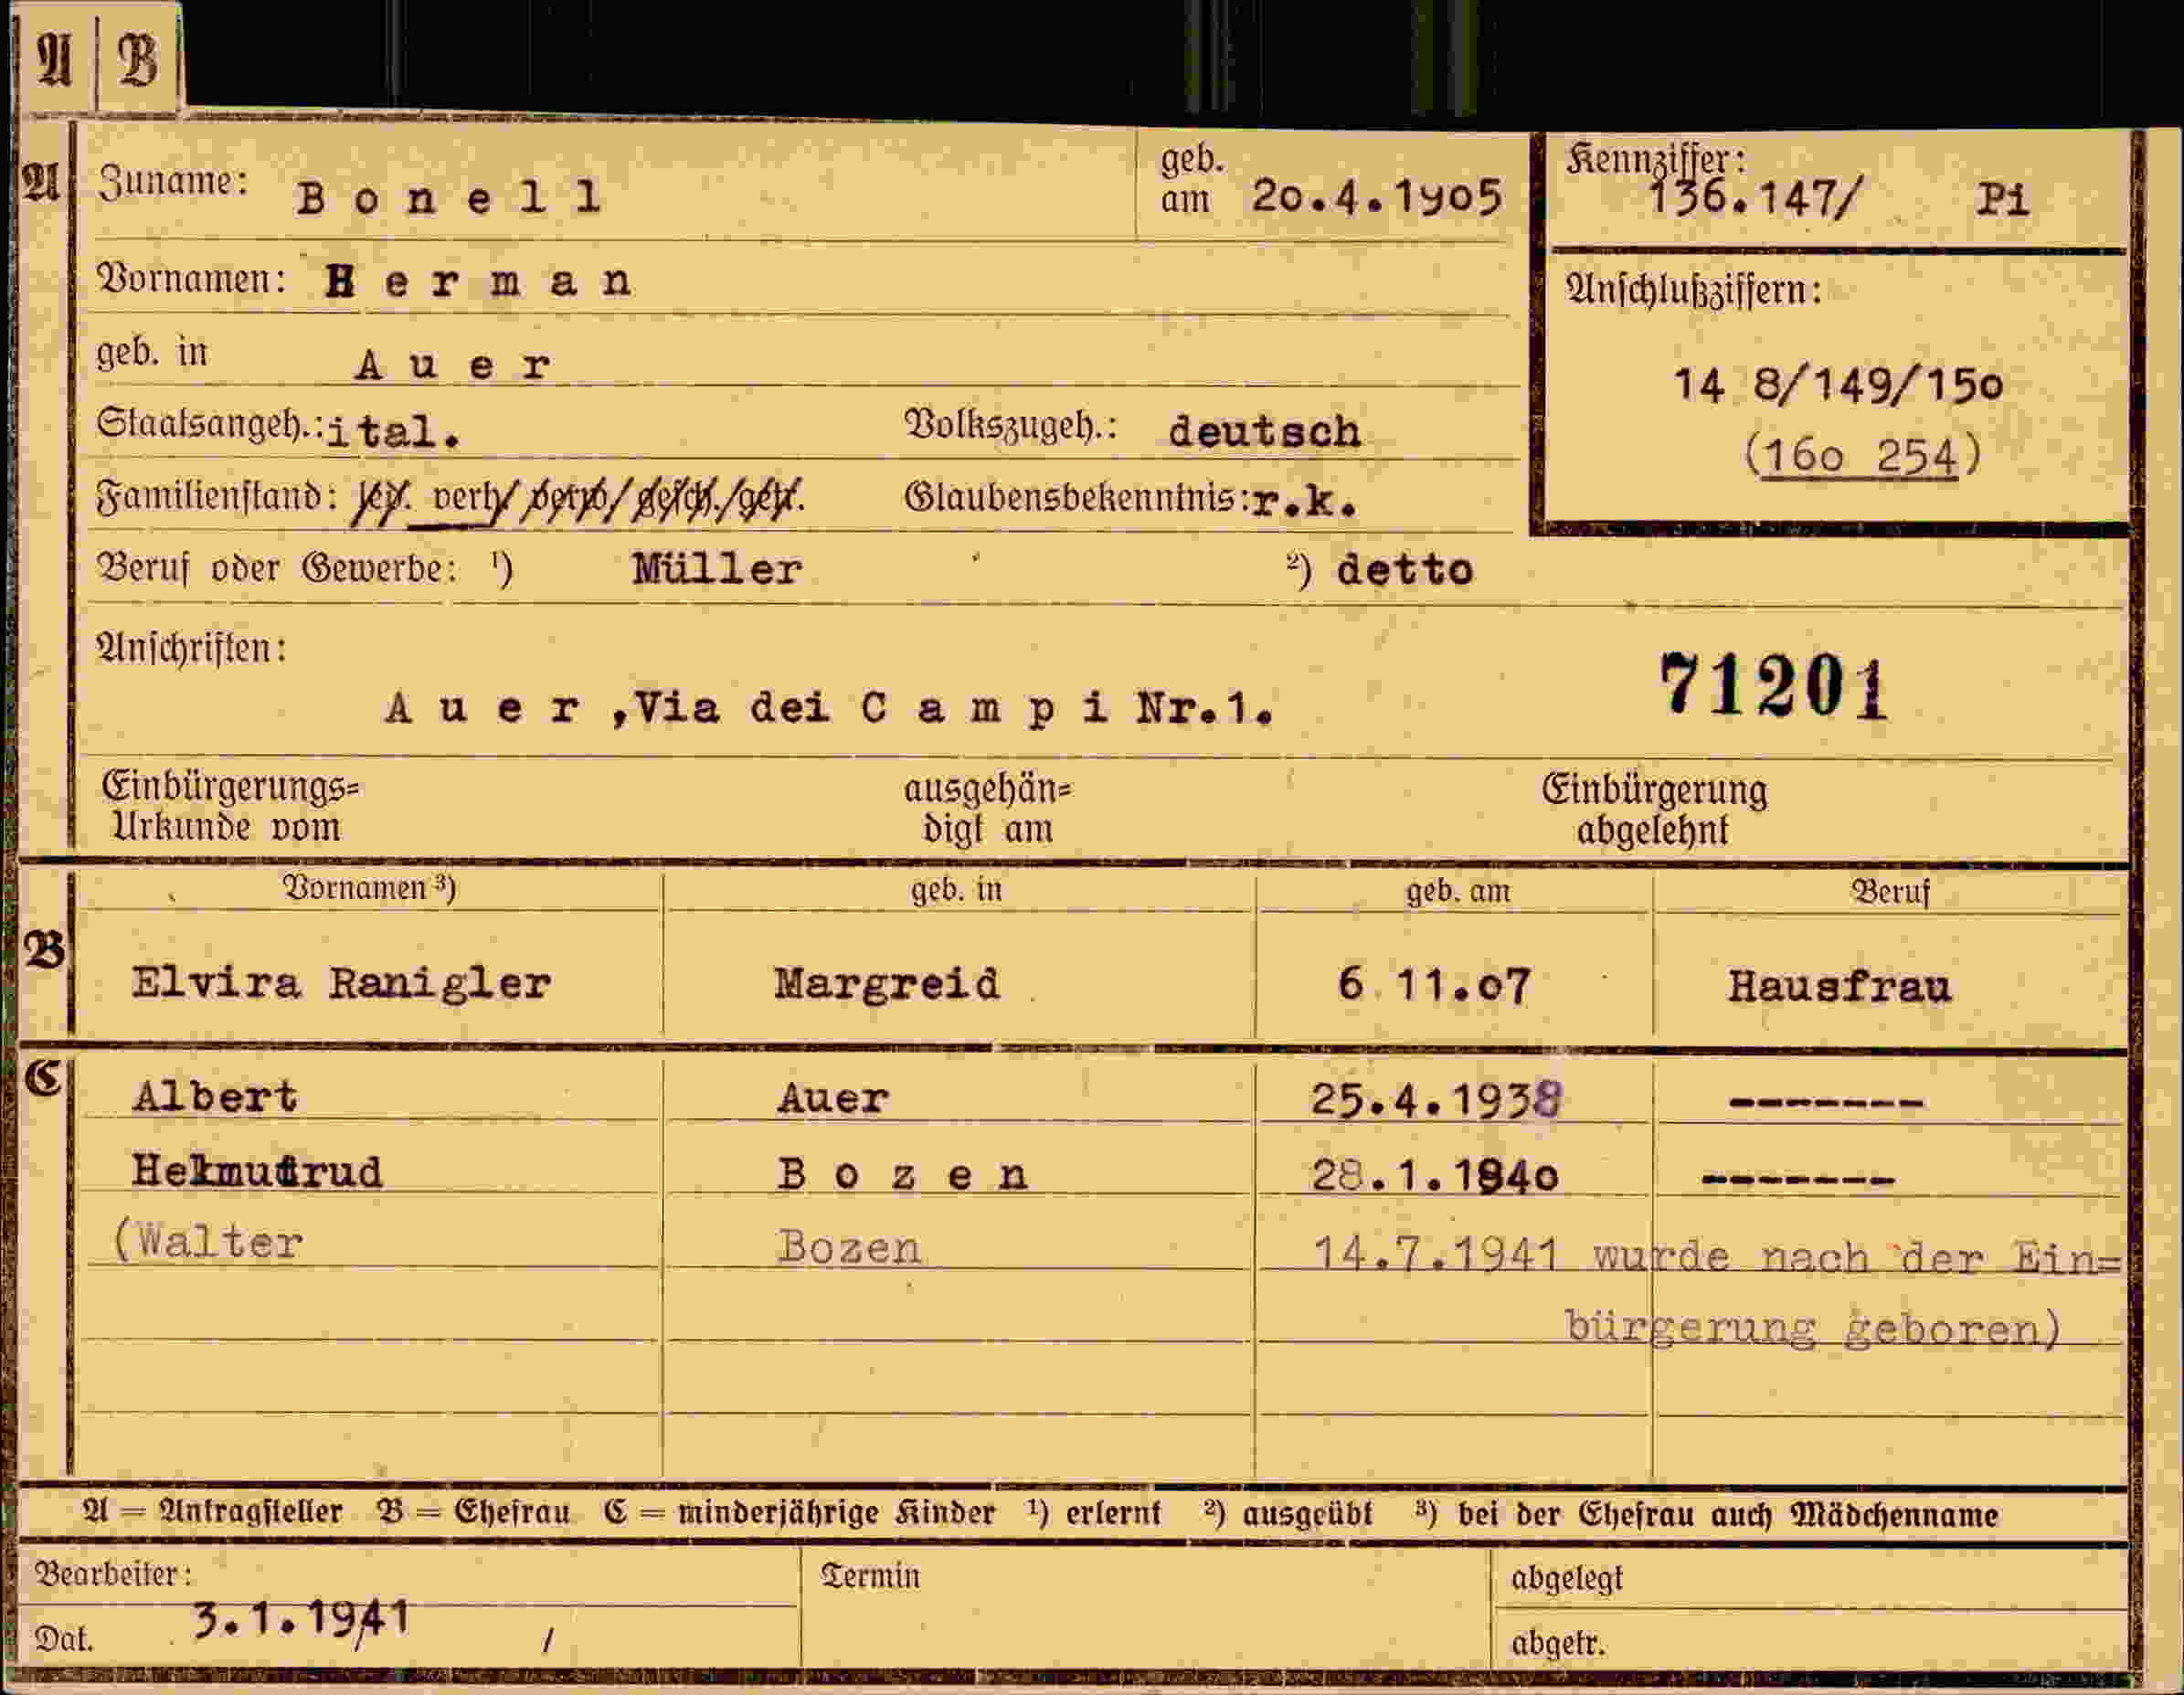 A B
A Zuname: Bonell geb. am 20.4.1905 Kennziffer: 136.147/ Pi
Vornamen: Herman
Anschlußziffern:
geb. in Auer
14 8/149/150
Staatsangeh.: ital. Volkszugeh.: deutsch
(160 254)
Familienstand: led. verh/ verw/ gesch./get. Glaubensbekenntnis: r.k.
Beruf oder Gewerbe: ¹) Müller ²) detto
Anschriften:
Auer, Via dei Campi Nr.1. 71201
Einbürgerungs= Urkunde vom ausgehän= digt am Einbürgerung abgelehnt
Vornamen ³) geb. in geb. am Beruf
B Elvira Ranigler Margreid 6 11.07 Hausfrau
C Albert Auer 25.4.1938 -------
Bozen 28.1.1940 -------
(Walter Bozen 14.7.1941 wurde nach der Ein=
bürgerung geboren)
A = Antragsteller B = Ehefrau C = minderjährige Kinder ¹) erlernt ²) ausgeübt ³) bei der Ehefrau auch Mädchenname
Bearbeiter: Termin abgelegt
Dat. 3.1.1941 / abgetr.